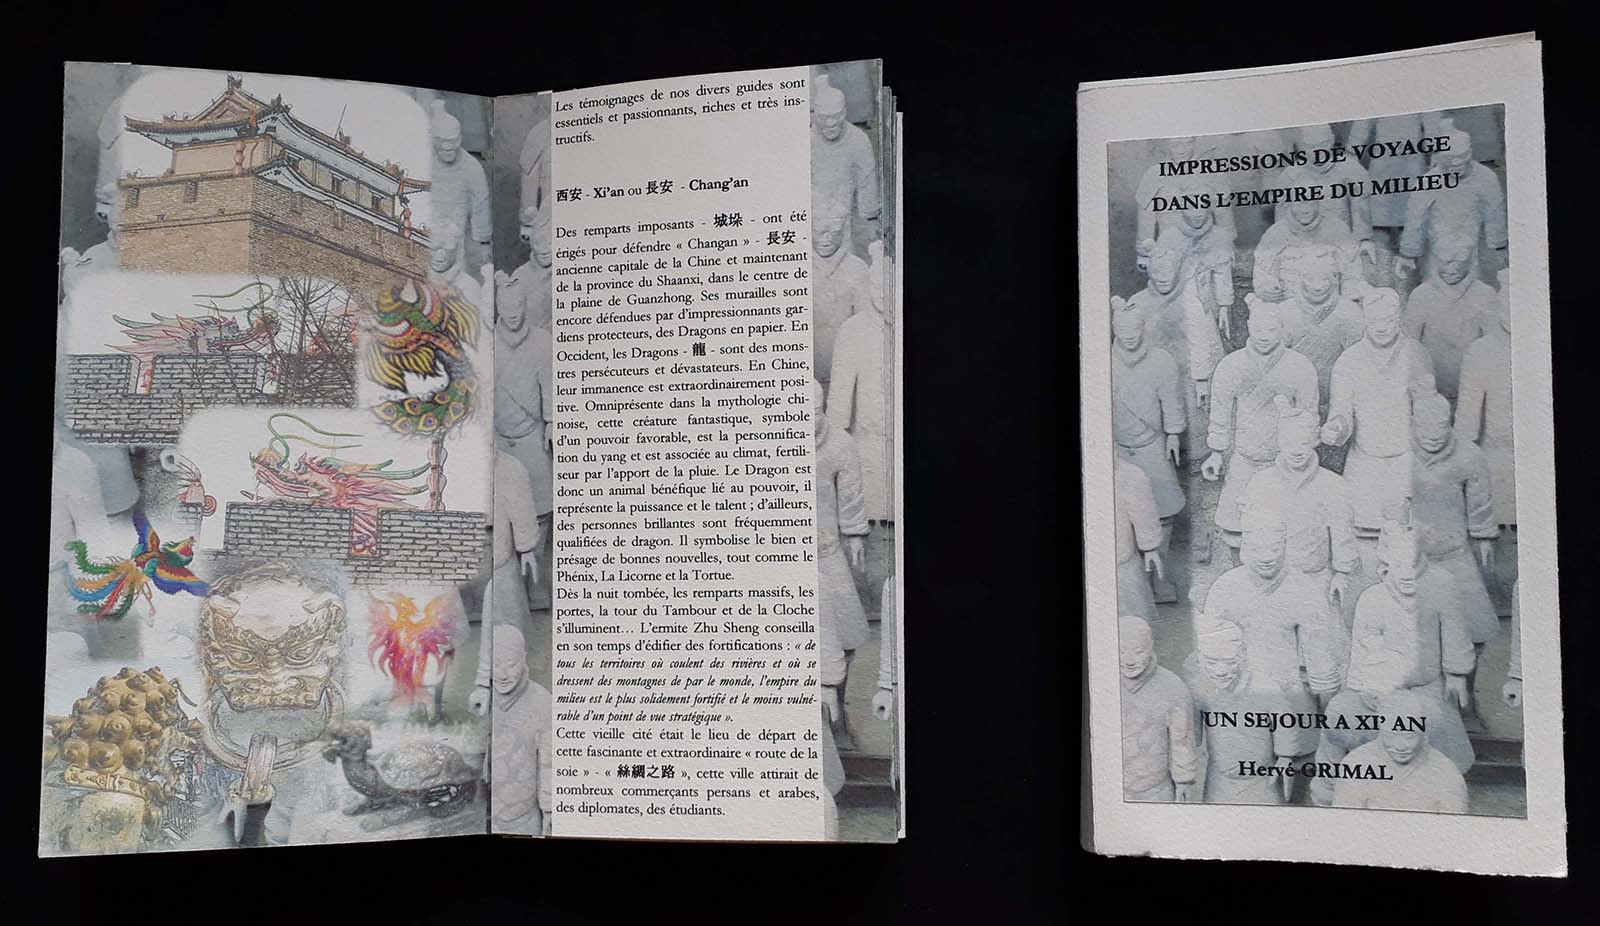 Les témoignages de nos divers guides sont
essentiels et passionnants, riches et très ins-
tructifs.
西安 - Xi'an ou 長安 - Chang'an
Des remparts imposants - 城垛 - ont été
érigés pour défendre « Changan » - 長安 -
ancienne capitale de la Chine et maintenant
de la province du Shaanxi, dans le centre de
la plaine de Guanzhong. Ses murailles sont
encore défendues par d'impressionnants gar-
diens protecteurs, des Dragons en papier. En
Occident, les Dragons - 龍 - sont des mons-
tres persécuteurs et dévastateurs. En Chine,
leur immanence est extraordinairement posi-
tive. Omniprésente dans la mythologie chi-
noise, cette créature fantastique, symbole
d'un pouvoir favorable, est la personnifica-
tion du yang et est associée au climat, fertili-
seur par l'apport de la pluie. Le Dragon est
donc un animal bénéfique lié au pouvoir, il
représente la puissance et le talent ; d'ailleurs,
des personnes brillantes sont fréquemment
qualifiées de dragon. Il symbolise le bien et
présage de bonnes nouvelles, tout comme le
Phénix, La Licorne et la Tortue.
Dès la nuit tombée, les remparts massifs, les
portes, la tour du Tambour et de la Cloche
s'illuminent… L'ermite Zhu Sheng conseilla
en son temps d'édifier des fortifications : « de
tous les territoires où coulent des rivières et où se
dressent des montagnes de par le monde, l'empire du
milieu est le plus solidement fortifié et le moins vulné-
rable d'un point de vue stratégique ».
Cette vieille cité était le lieu de départ de
cette fascinante et extraordinaire « route de la
soie » - « 絲綢之路 », cette ville attirait de
nombreux commerçants persans et arabes,
des diplomates, des étudiants.
IMPRESSIONS DE VOYAGE
DANS L'EMPIRE DU MILIEU
UN SEJOUR A XI' AN
Hervé GRIMAL